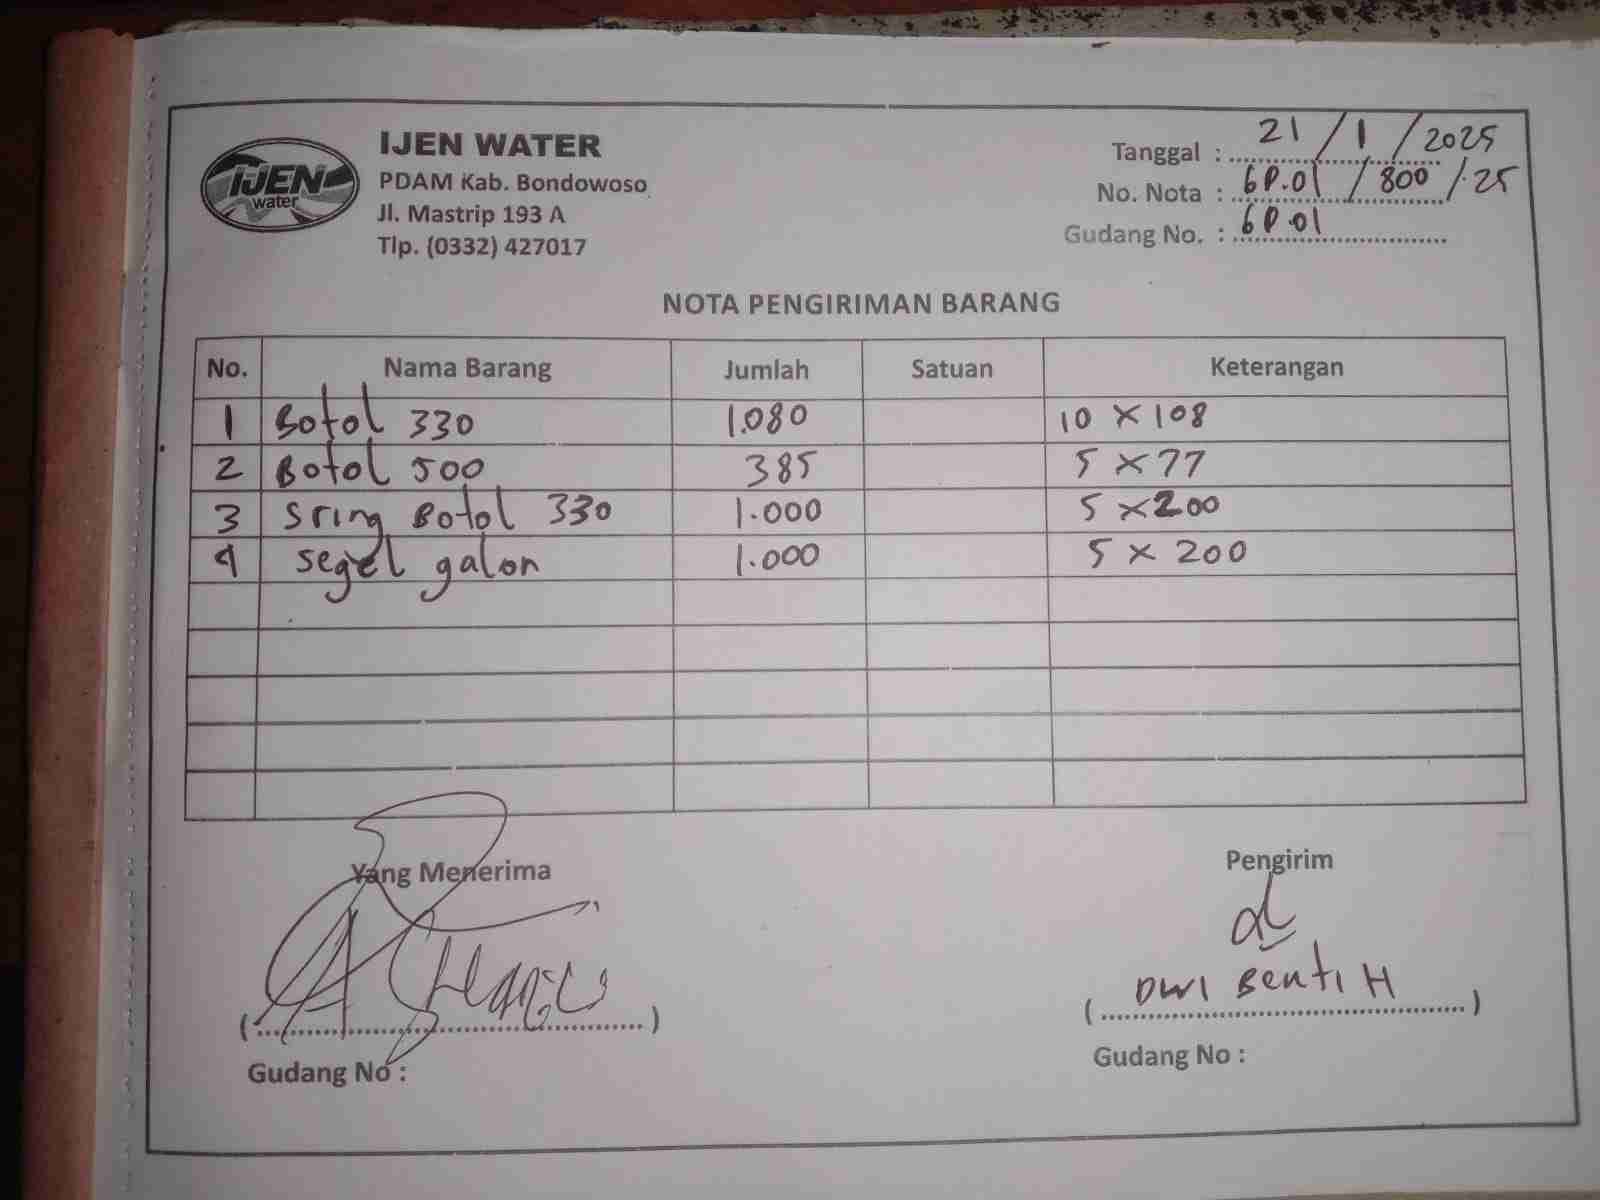 IJEN
water
IJEN WATER
PDAM Kab. Bondowoso
Jl. Mastrip 193 A
Tlp. (0332) 427017
Tanggal : 21 / 1 / 2025
No. Nota : 6P.01 / 800 / .25
Gudang No. : 6P.01
NOTA PENGIRIMAN BARANG
No. Nama Barang Jumlah Satuan Keterangan
1 Botol 330 1.080 10 x 108
2 Botol 500 385 5 x 77
3 Sring Botol 330 1.000 5 x 200
4 segel galon 1.000 5 x 200
Yang Menerima
Pengirim
DWI Benti H
Gudang No :
Gudang No :